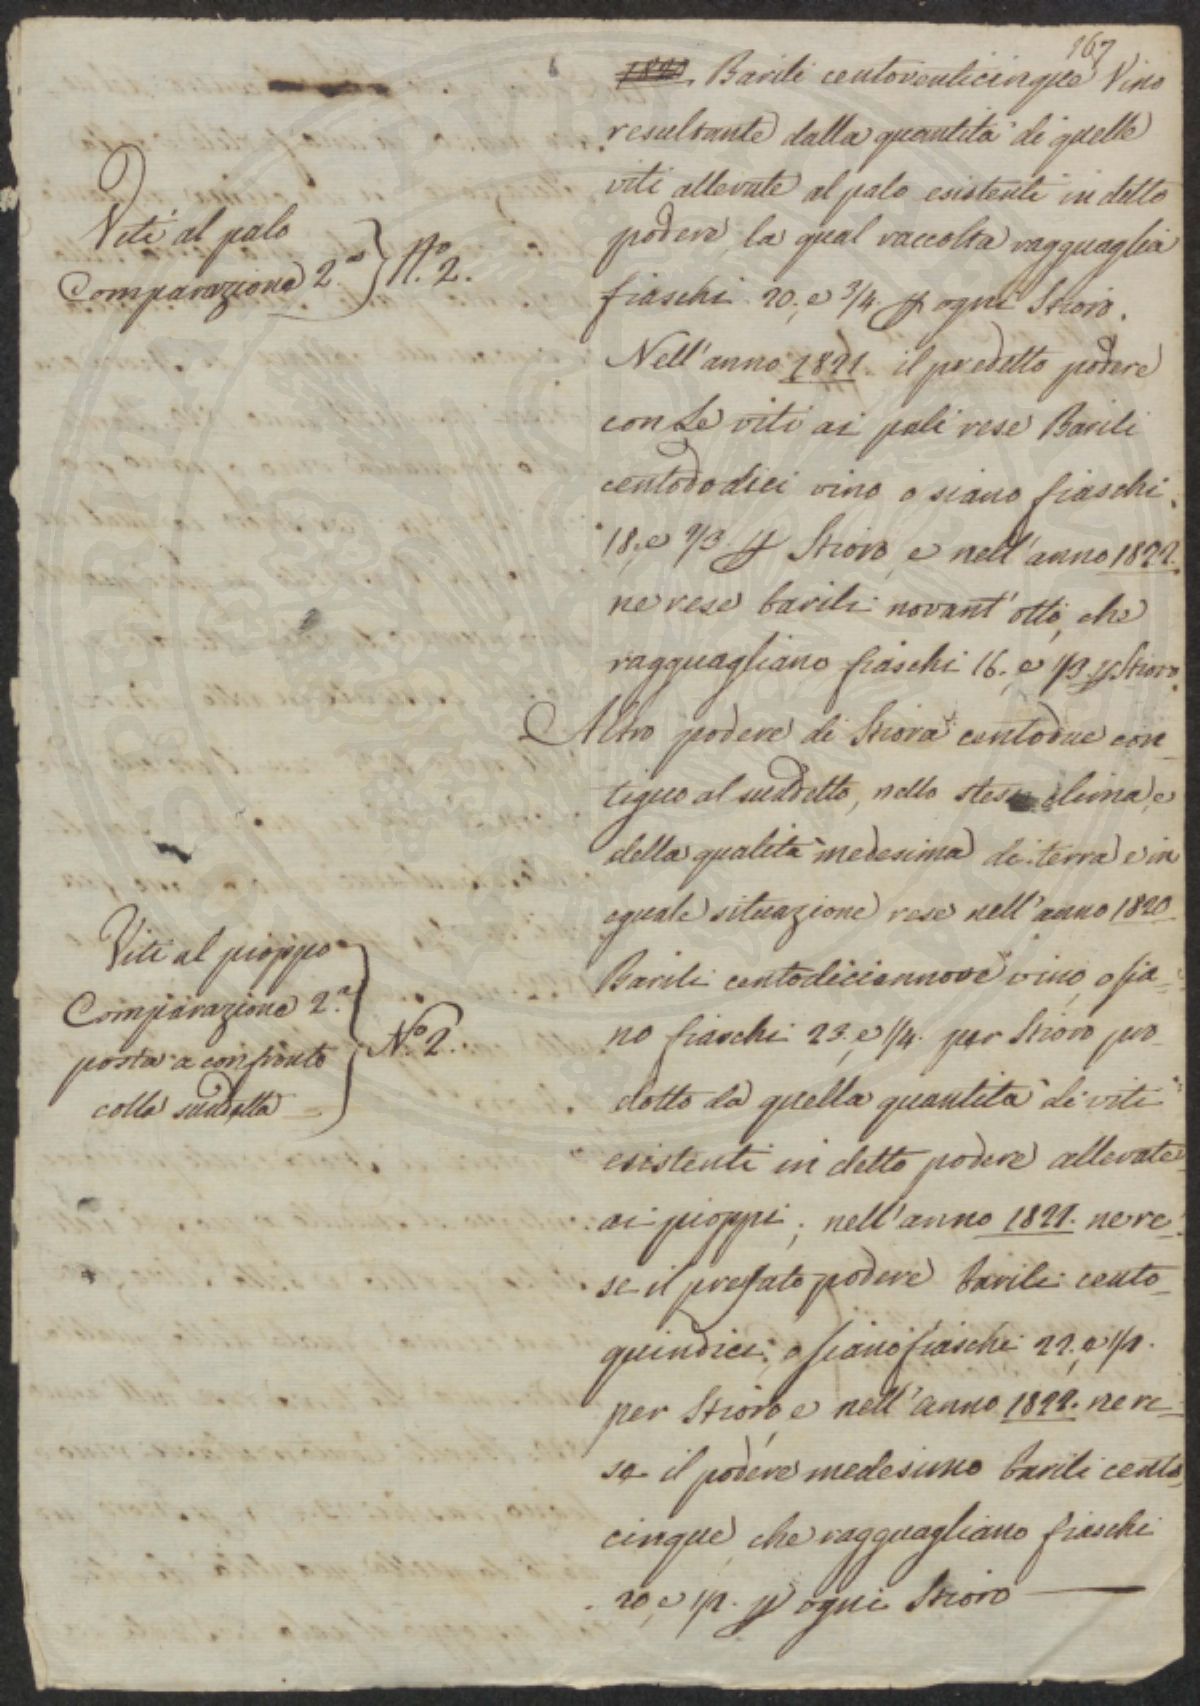 167
1820. Barili centoventicinque Vino
resultante dalla quantità di quelle
viti allevate al palo esistenti in detto
podere, la qual raccolta ragguaglia
fiaschi 20, e 3/4. p ogni Stioro.
Viti al palo
Comparazione 2.a
N.o 2.
Nell'anno 1821. il predetto podere
con Le viti ai pali rese Barili
centododici vino o siano fiaschi
18, e 2/3. p Stioro, e nell'anno 1822.
ne rese barili novant'otto, che
ragguagliano fiaschi 16. e 1/3. p Stioro.
Altro podere di Stiora centodue con-
tiguo al suddetto, nello stesso clima, e
della qualità medesima di terra e in
eguale situazione rese nell'anno 1820
Barili centodiciannove vino, o sia-
no fiaschi 23. e 1/4. per Stioro pro-
dotto da quella quantità di viti
esistenti in detto podere allevate
ai pioppi; nell'anno 1821. ne re-
se il prefato podere barili cento-
quindici, o siano fiaschi 22. e 1/2.
per Stioro, e nell'anno 1822. ne re-
se il podere medesimo barili cento-
cinque, che ragguagliano fiaschi
20, e 1/2. p ogni Stioro
Viti al pioppo
Comparazione 2.a
posta a confronto
colla suddetta
N.o 2.